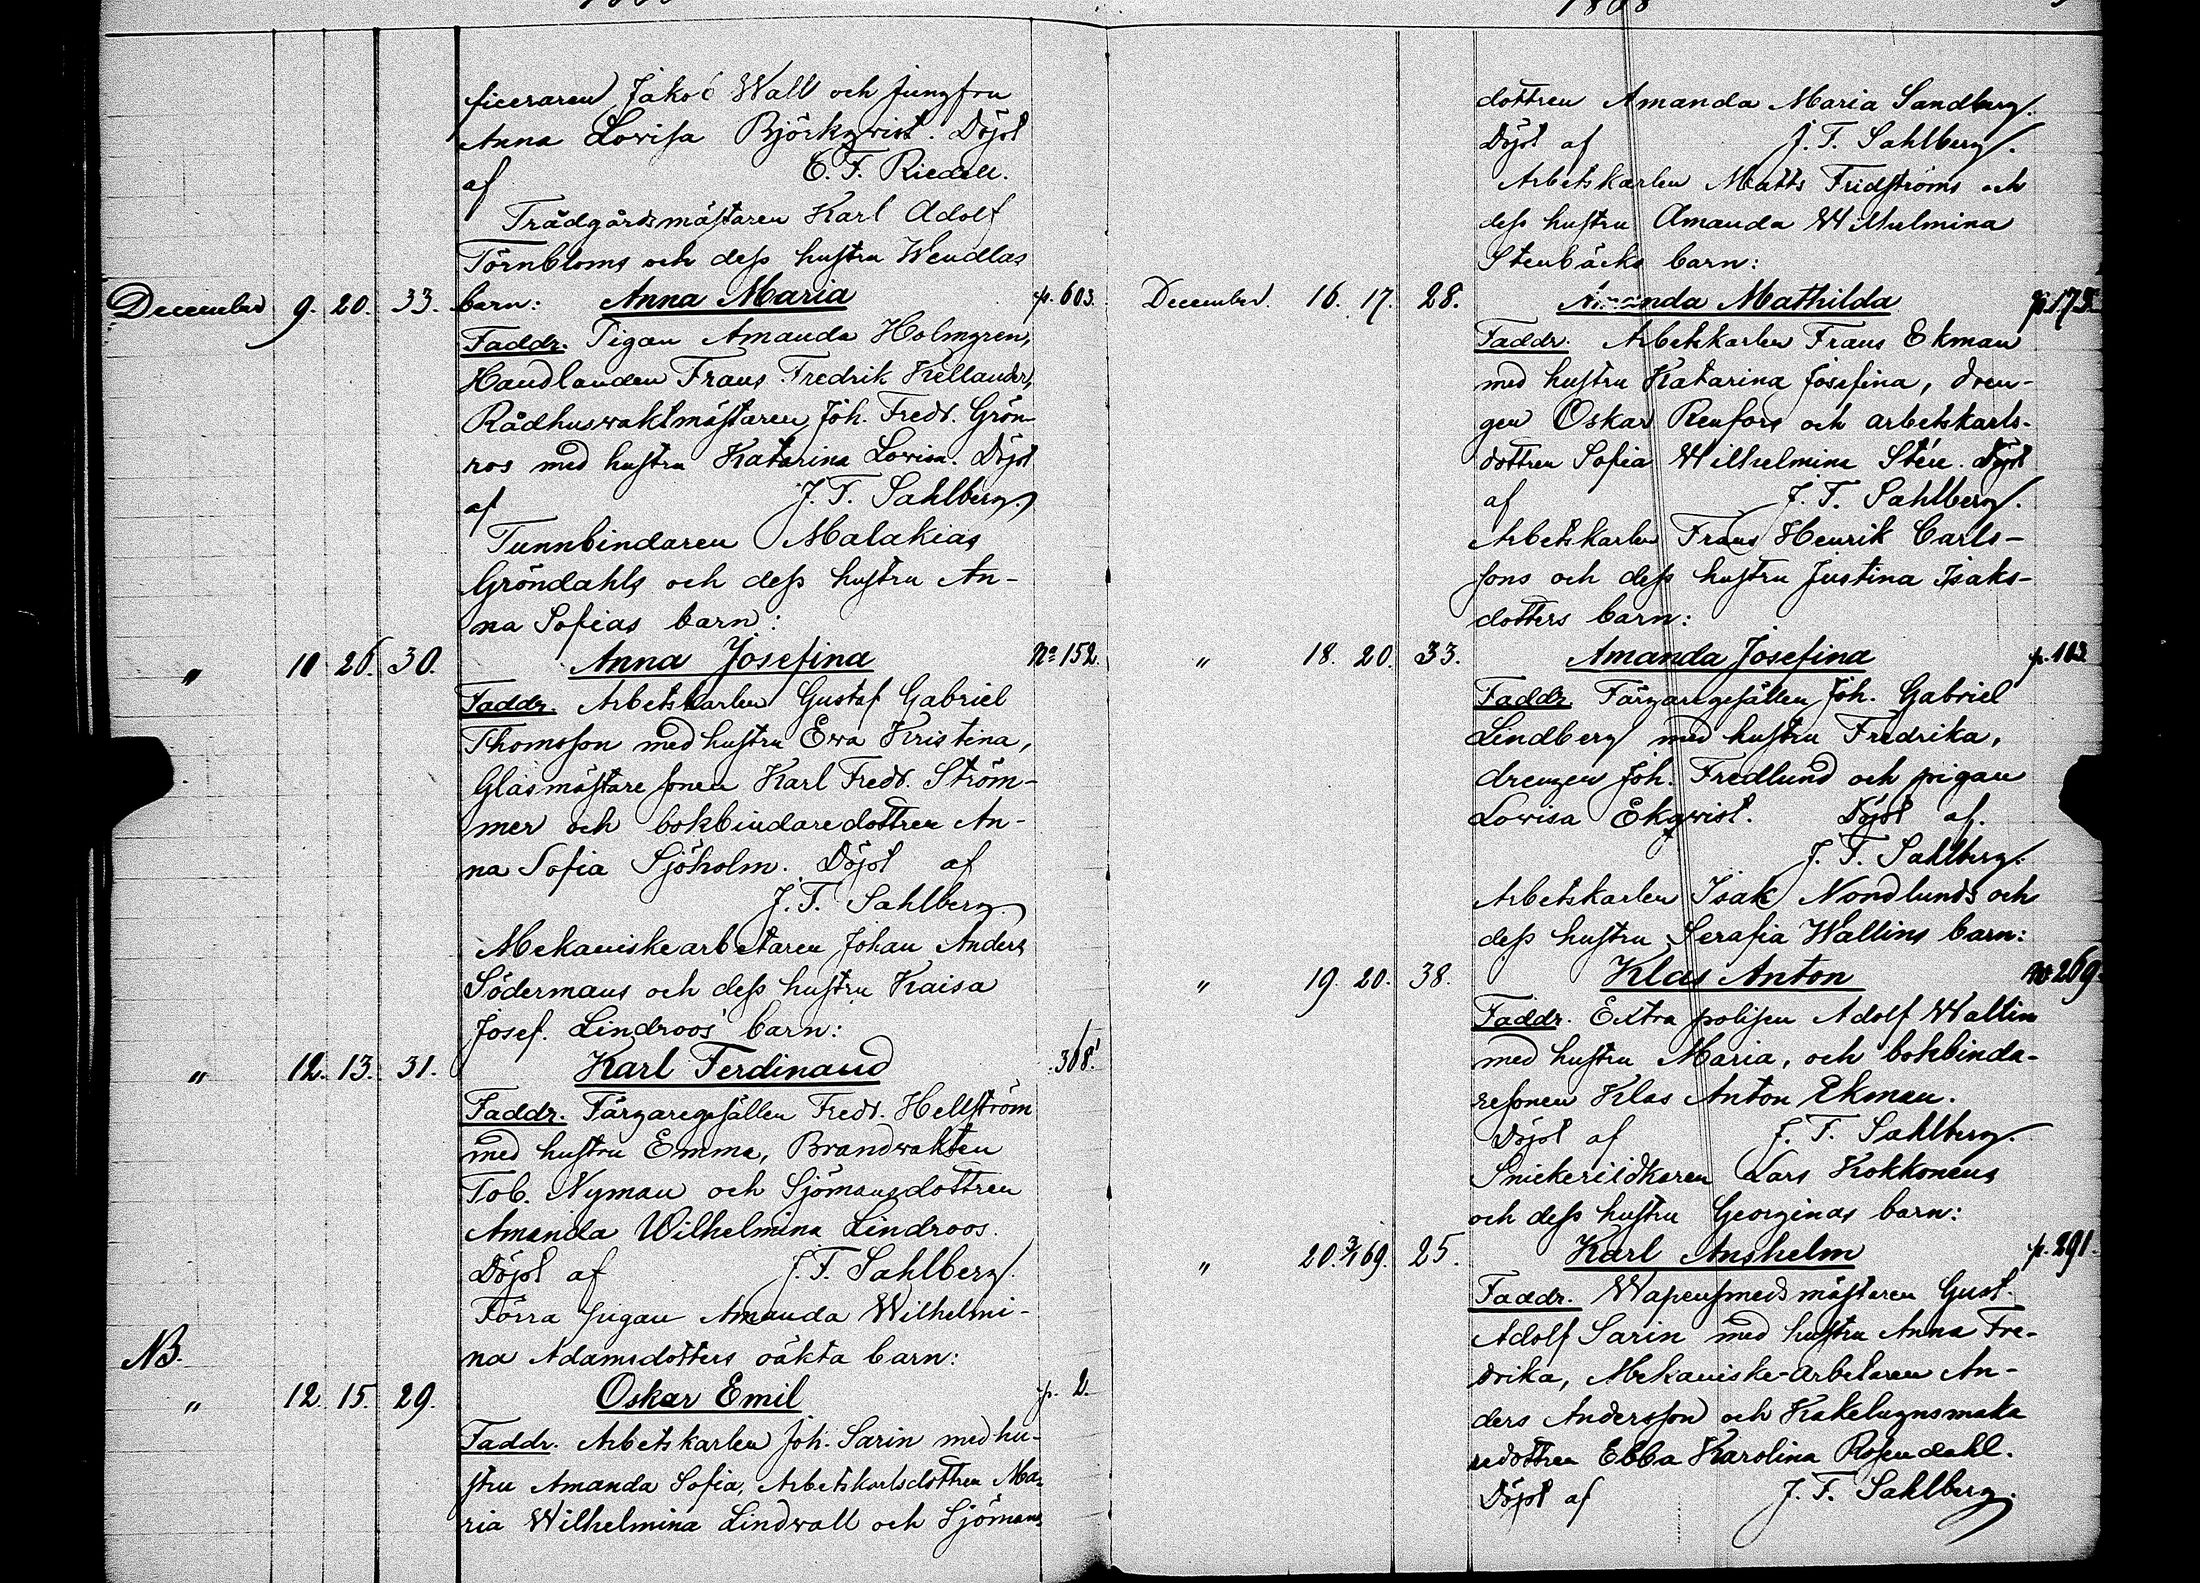 ficeraren Jakob Wall och jungfru
Anna Lovisa Björkqvist. Döpt
af E. F. Riedell.
Trädgårdsmästaren Karl Adolf
Törnbloms och dess hustru Wendlas
December 9. 20. 33. barn: Anna Maria p. 603.
Faddr. Pigan Amanda Holmgren,
Handlanden Frans Fredrik Kellander,
Rådhusvaktmästaren Joh. Fredr. Grön-
ros med hustru Katarina Lovisa. Döpt
af J. F. Sahlberg.
Tunnbindaren Malakias
Gröndahls och dess hustru An-
na Sofias barn:
" 10 26. 30. Anna Josefina No 152.
Faddr. Arbetskarlen Gustaf Gabriel
Thomsson med hustru Ewa Kristina,
Glasmästare sonen Karl Fredr. Ström-
mer och bokbindaredottren An-
na Sofia Sjöholm. Döpt af
J. F. Sahlberg.
Mekaniskearbetaren Johan Anders
Södermans och dess hustru Kaisa
Josef. Lindroos' barn:
" 12. 13. 31. Karl Ferdinand 368.
Faddr. Färgaregesällen Fredr. Hellström
med hustru Emma, Brandvakten
Tob. Nyman och Sjömansdottren
Amanda Wilhelmina Lindroos.
Döpt af J. F. Sahlberg.
Förra pigan Amanda Wilhelmi-
NB. na Adamsdotters oäkta barn:
" 12. 15. 29. Oskar Emil p. 2.
Faddr. Arbetskarlen Joh. Sarin med hu-
stru Amanda Sofia, Arbetskarlsdottren Ma-
ria Wilhelmina Lindwall och Sjömans-
1868
dottren Amanda Maria Sandberg.
Döpt af J. F. Sahlberg.
Arbetskarlen Matts Fridströms och
dess hustru Amanda Wilhelmina
Stenbäcks barn:
December. 16. 17. 28. Amanda Mathilda p. 175.
Faddr. Arbetskarlen Frans Ekman
med hustru Katarina Josefina, dren-
gen Oskar Renfors och arbetskarls-
dottren Sofia Wilhelmina Stén. Döpt
af J. F. Sahlberg.
Arbetskarlen Frans Henrik Carls-
sons och dess hustru Justina Isaks-
dotters barn:
" 18. 20. 33. Amanda Josefina p. 103
Faddr. Färgaregesällen Joh. Gabriel
Lindberg med hustru Fredrika,
drengen Joh. Fredlund och pigan
Lovisa Ekqvist. Döpt af.
J. F. Sahlberg.
Arbetskarlen Isak Nordlunds och
dess hustru Serafia Wallins barn:
" 19. 20. 38. Klas Anton No 269.
Faddr. Extra polisen Adolf Wallin
med hustru Maria, och bokbinda-
resonen Klas Anton Ekman.
Döpt af J. F. Sahlberg.
Snickeriidkaren Lars Kokkonens
och dess hustru Georginas barn:
" 20. 3/1 69. 25. Karl Anshelm p. 291.
Faddr. Wapensmedsmästaren Gust.
Adolf Sarin med hustru Anna Fre-
drika, Mekaniske-Arbetaren An-
ders Andersson och Kakelugnsmaka
redottren Ebba Karolina Rosendahl.
Döpt af J. F. Sahlberg.